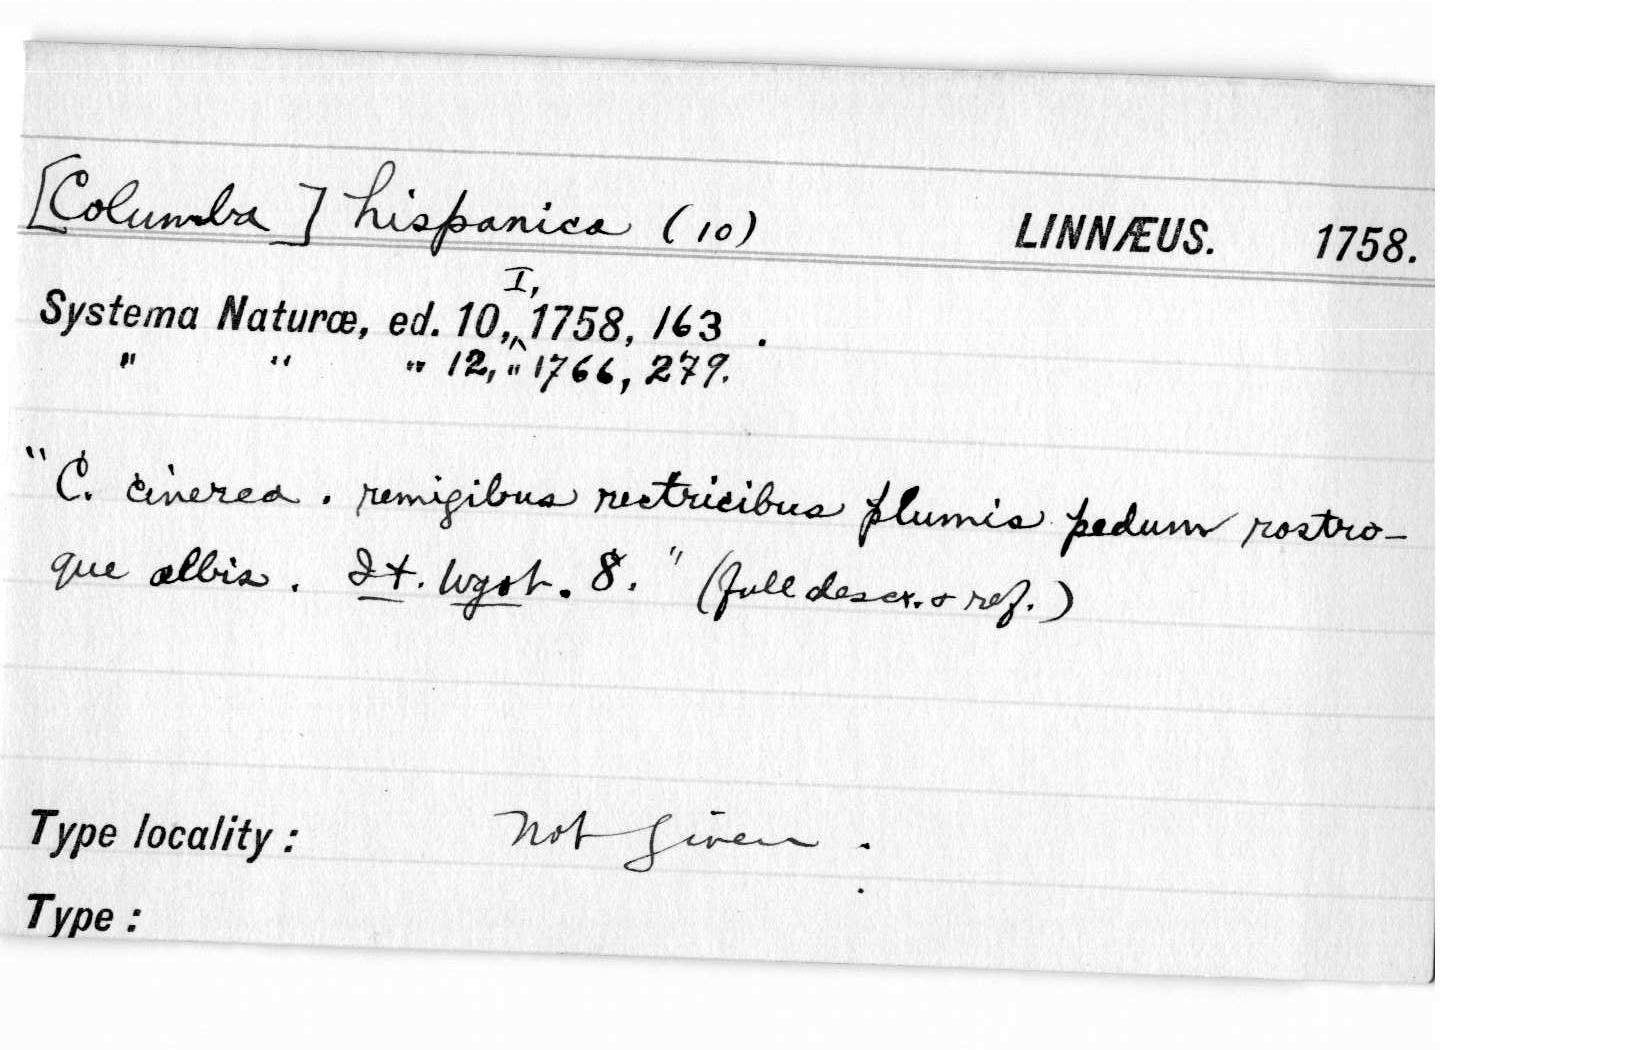 [Columba] hispanica (10) LINNÆUS. 1758.
I,
Systema Naturæ, ed. 10, ‸ 1758, 163 .
" " " 12, " 1766, 279.
"C. cinerea . remigibus rectricibus plumis pedum rostro-
que albis . It. Wgot. 8." (full descr. & ref.)
Type locality : not given .
Type :